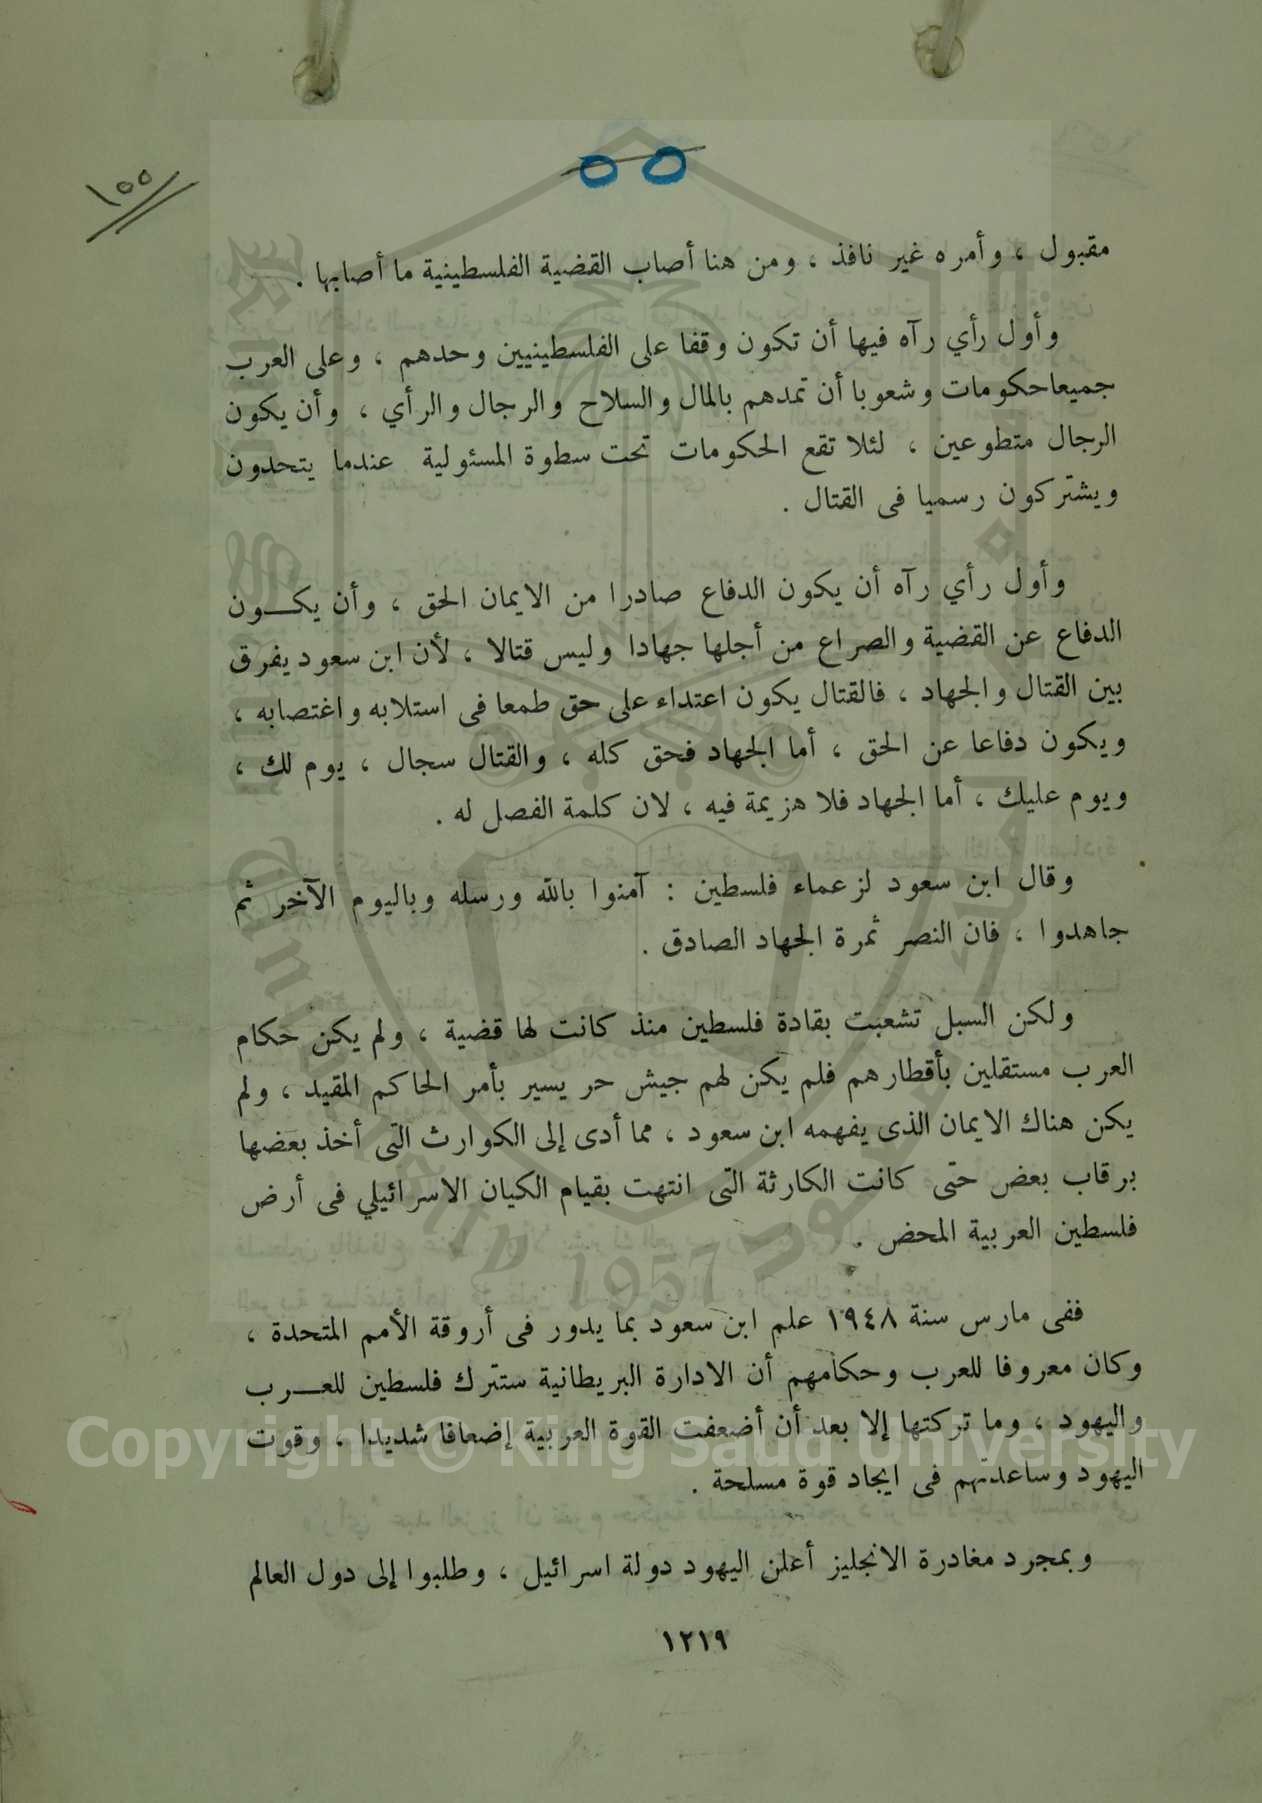 ٥٥
١٥٥
مقبول ، وأمره غير نافذ ، ومن هنا أصاب القضية الفلسطينية ما أصابها .
وأول رأي رآه فيها أن تكون وقفا على الفلسطينيين وحدهم ، وعلى العرب
جميعاحكومات وشعوبا أن تمدهم بالمال والسلاح والرجال والرأي ، وأن يكون
الرجال متطوعين ، لئلا تقع الحكومات تحت سطوة المسئولية عندما يتحدون
ويشتركون رسميا فى القتال .
وأول رأي رآه أن يكون الدفاع صادرا من الايمان الحق ، وأن يكـــون
الدفاع عن القضية والصراع من أجلها جهادا وليس قتالا ، لأن ابن سعود يفرق
بين القتال والجهاد ، فالقتال يكون اعتداء على حق طمعا فى استلابه واغتصابه ،
ويكون دفاعا عن الحق ، أما الجهاد فحق كله ، والقتال سجال ، يوم لك ،
ويوم عليك ، أما الجهاد فلا هزيمة فيه ، لان كلمة الفصل له .
وقال ابن سعود لزعماء فلسطين : آمنوا بالله ورسله وباليوم الآخر ثم
جاهدوا ، فان النصر ثمرة الجهاد الصادق .
ولكن السبل تشعبت بقادة فلسطين منذ كانت لها قضية ، ولم يكن حكام
العرب مستقلين بأقطارهم فلم يكن لهم جيش حر يسير بأمر الحاكم المقيد ، ولم
يكن هناك الايمان الذى يفهمه ابن سعود ، مما أدى إلى الكوارث التى أخذ بعضها
برقاب بعض حتى كانت الكارثة التى انتهت بقيام الكيان الاسرائيلي فى أرض
فلسطين العربية المحض .
ففى مارس سنة ١٩٤٨ علم ابن سعود بما يدور فى أروقة الأمم المتحدة ،
وكان معروفا للعرب وحكامهم أن الادارة البريطانية ستترك فلسطين للعـــرب
واليهود ، وما تركتها إلا بعد أن أضعفت القوة العربية إضعافا شديدا ، وقوت
اليهود وساعدتهم فى ايجاد قوة مسلحة .
وبمجرد مغادرة الانجليز أعلن اليهود دولة اسرائيل ، وطلبوا إلى دول العالم
١٢١٩
Copyright © King Saud University
جامعة الملك سعود
King Saud University 1957